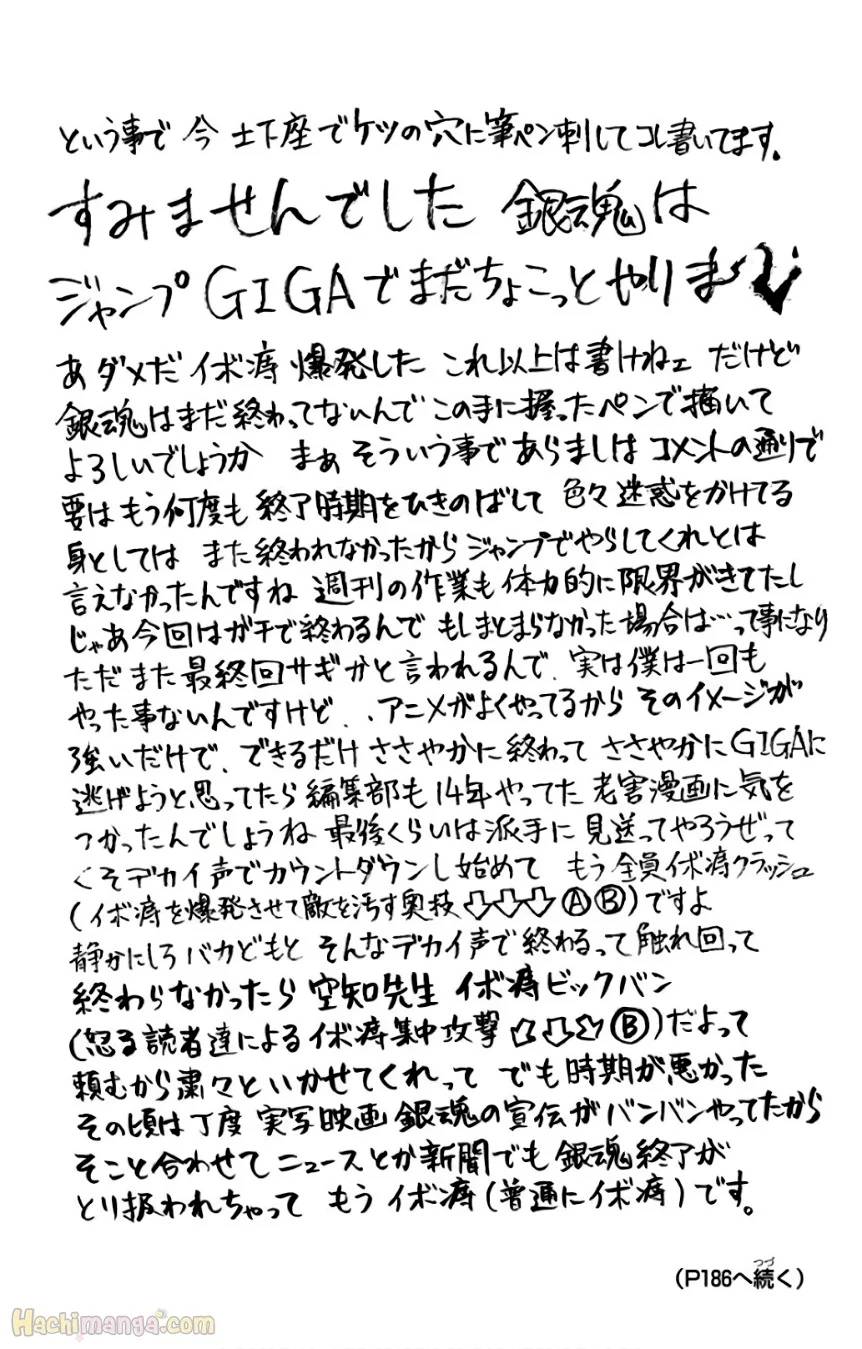 という事で 今 土下座でケツの穴に筆ペン刺してコレ書いてます。
すみませんでした 銀魂は
ジャンプGIGAでまだちょこっとやりま
あダメだ イボ痔 爆発した これ以上は書けねェ だけど
銀魂はまだ終わってないんで この手に握ったペンで描いて
よろしいでしょうか まぁ そういう事で あらましは コメントの通りで
要は もう何度も 終了時期をひきのばして 色々迷惑をかけてる
身としては また終われなかったから ジャンプでやらしてくれとは
言えなかったんですね 週刊の作業も 体力的に限界がきてたし
じゃあ今回はガチで終わるんで もしまとまらなかった場合は…って事になり
ただまた最終回サギかと言われるんで、実は僕は一回も
やった事ないんですけど、、アニメがよくやってるから そのイメージが
強いだけで、できるだけ ささやかに終わって ささやかにGIGAに
逃げようと思ってたら 編集部も14年やってた 老害漫画に気を
つかったんでしょうね 最後くらいは派手に 見送ってやろうぜって
くそデカイ声でカウントダウンし始めて もう全員イボ痔クラッシュ
(イボ痔を爆発させて敵を汚す奥技⇩⇩⇩ⒶⒷ)ですよ
静かにしろバカどもと そんなデカイ声で終わるって触れ回って
終わらなかったら 空知先生 イボ痔ビックバン
(怒る読者達によるイボ痔集中攻撃 Ⓑ)だよって
頼むから粛々といかせてくれって でも時期が悪かった
その頃は丁度 実写映画 銀魂の宣伝がバンバンやってたから
そこと合わせて ニュースとか新聞でも 銀魂終了が
とり扱われちゃって もう イボ痔(普通にイボ痔)です。
(P186へ続く)
つづ
Hachimanga.com